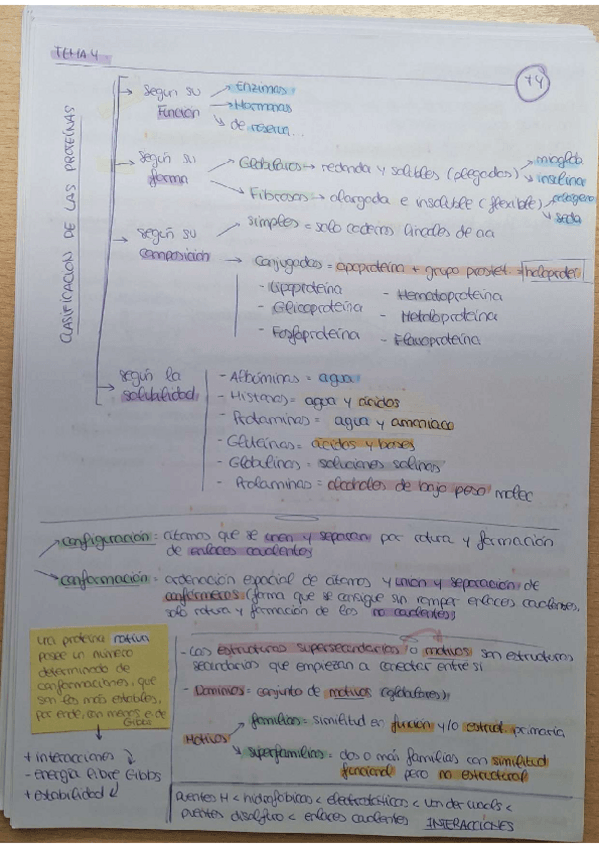 TEMA 4
44
CLASIFICACIÓN DE LAS PROTEÍNAS
→ según su función → Enzimas
→ Hormonas
↘ de reserva...
→ según su forma → Globulares → redonda y solubles (plegadas) → mioglob
↘ insulina
→ Fibrosas → alargada e insoluble (flexible) → colágeno
↘ seda
→ según su composición → simples = solo cadenas lineales de aa
→ conjugadas = apoproteína + grupo prostet. = holoprotei
- Lipoproteína
- Hematoproteína
- Glicoproteína
- Metaloproteína
- Fosfoproteína
- Flavoproteína
→ según la solubilidad
- Albúminas = agua
- Histonas = agua y ácidos
- Protaminas = agua y amoniaco
- Gluteínas = ácidos y bases
- Globulinas = soluciones salinas
- Prolaminas = alcoholes de bajo peso molec
configuración = átomos que se unen y separan por rotura y formación
de enlaces covalentes
conformación = ordenación espacial de átomos y unión y separación de
confórmeros (forma que se consigue sin romper enlaces covalentes,
solo rotura y formación de los no covalentes)
una proteína nativa
posee un número
determinado de
conformaciones, que
son las más estables,
por ende, con menos e. de
Gibbs
+ interacciones
- energía libre Gibbs
+ estabilidad
- Las estructuras supersecundarias (o motivos) son estructuras
secundarias que empiezan a conectar entre sí
- Dominios = conjunto de motivos
Motivos → familias = similitud en función y/o estruct. primaria
↘ superfamilias = dos o más familias con similitud
funcional pero no estructural
puentes H < hidrofóbicas < electrostáticas < van der waals <
puentes disulfuro < enlaces covalentes INTERACCIONES